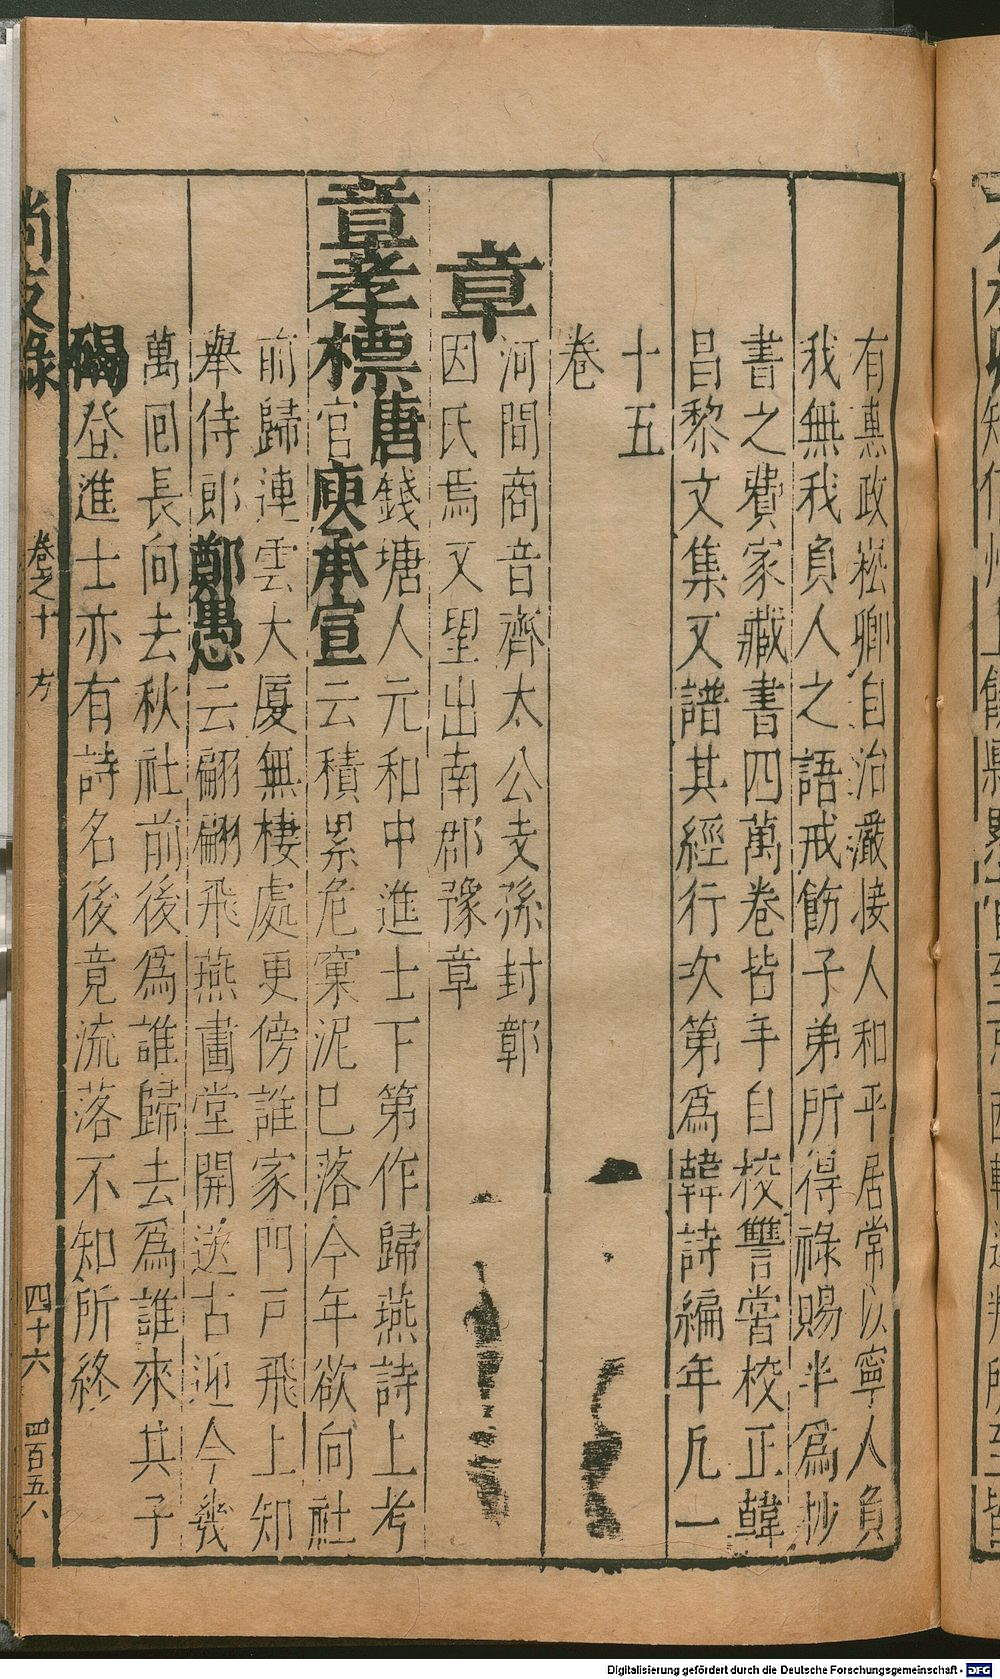 有惠政崧卿自治嚴接人和平居常以寧人負
我無我負人之語戒飭子弟所得祿賜半爲抄
書之費家藏書四萬卷皆手自校讐嘗校正韓
昌黎文集又譜其經行次第爲韓詩編年凡一
十五
卷
河間商音齊太公支孫封鄣
章
因氏焉又望出南郡豫章
章孝標唐錢塘人元和中進士下第作歸燕詩上考
官庾承宣云積累危窠泥已落今年欲向社
前歸連雲大厦無棲處更傍誰家門戸飛上知
舉侍郎鄭愚云翩翩飛燕畫堂開送古迎今幾
萬囘長向去秋社前後爲誰歸去爲誰來其子
碣登進士亦有詩名後竟流落不知所終
尚友錄
卷之十
方
四十六
四百五八
Digitalisierung gefördert durch die Deutsche Forschungsgemeinschaft - DFG